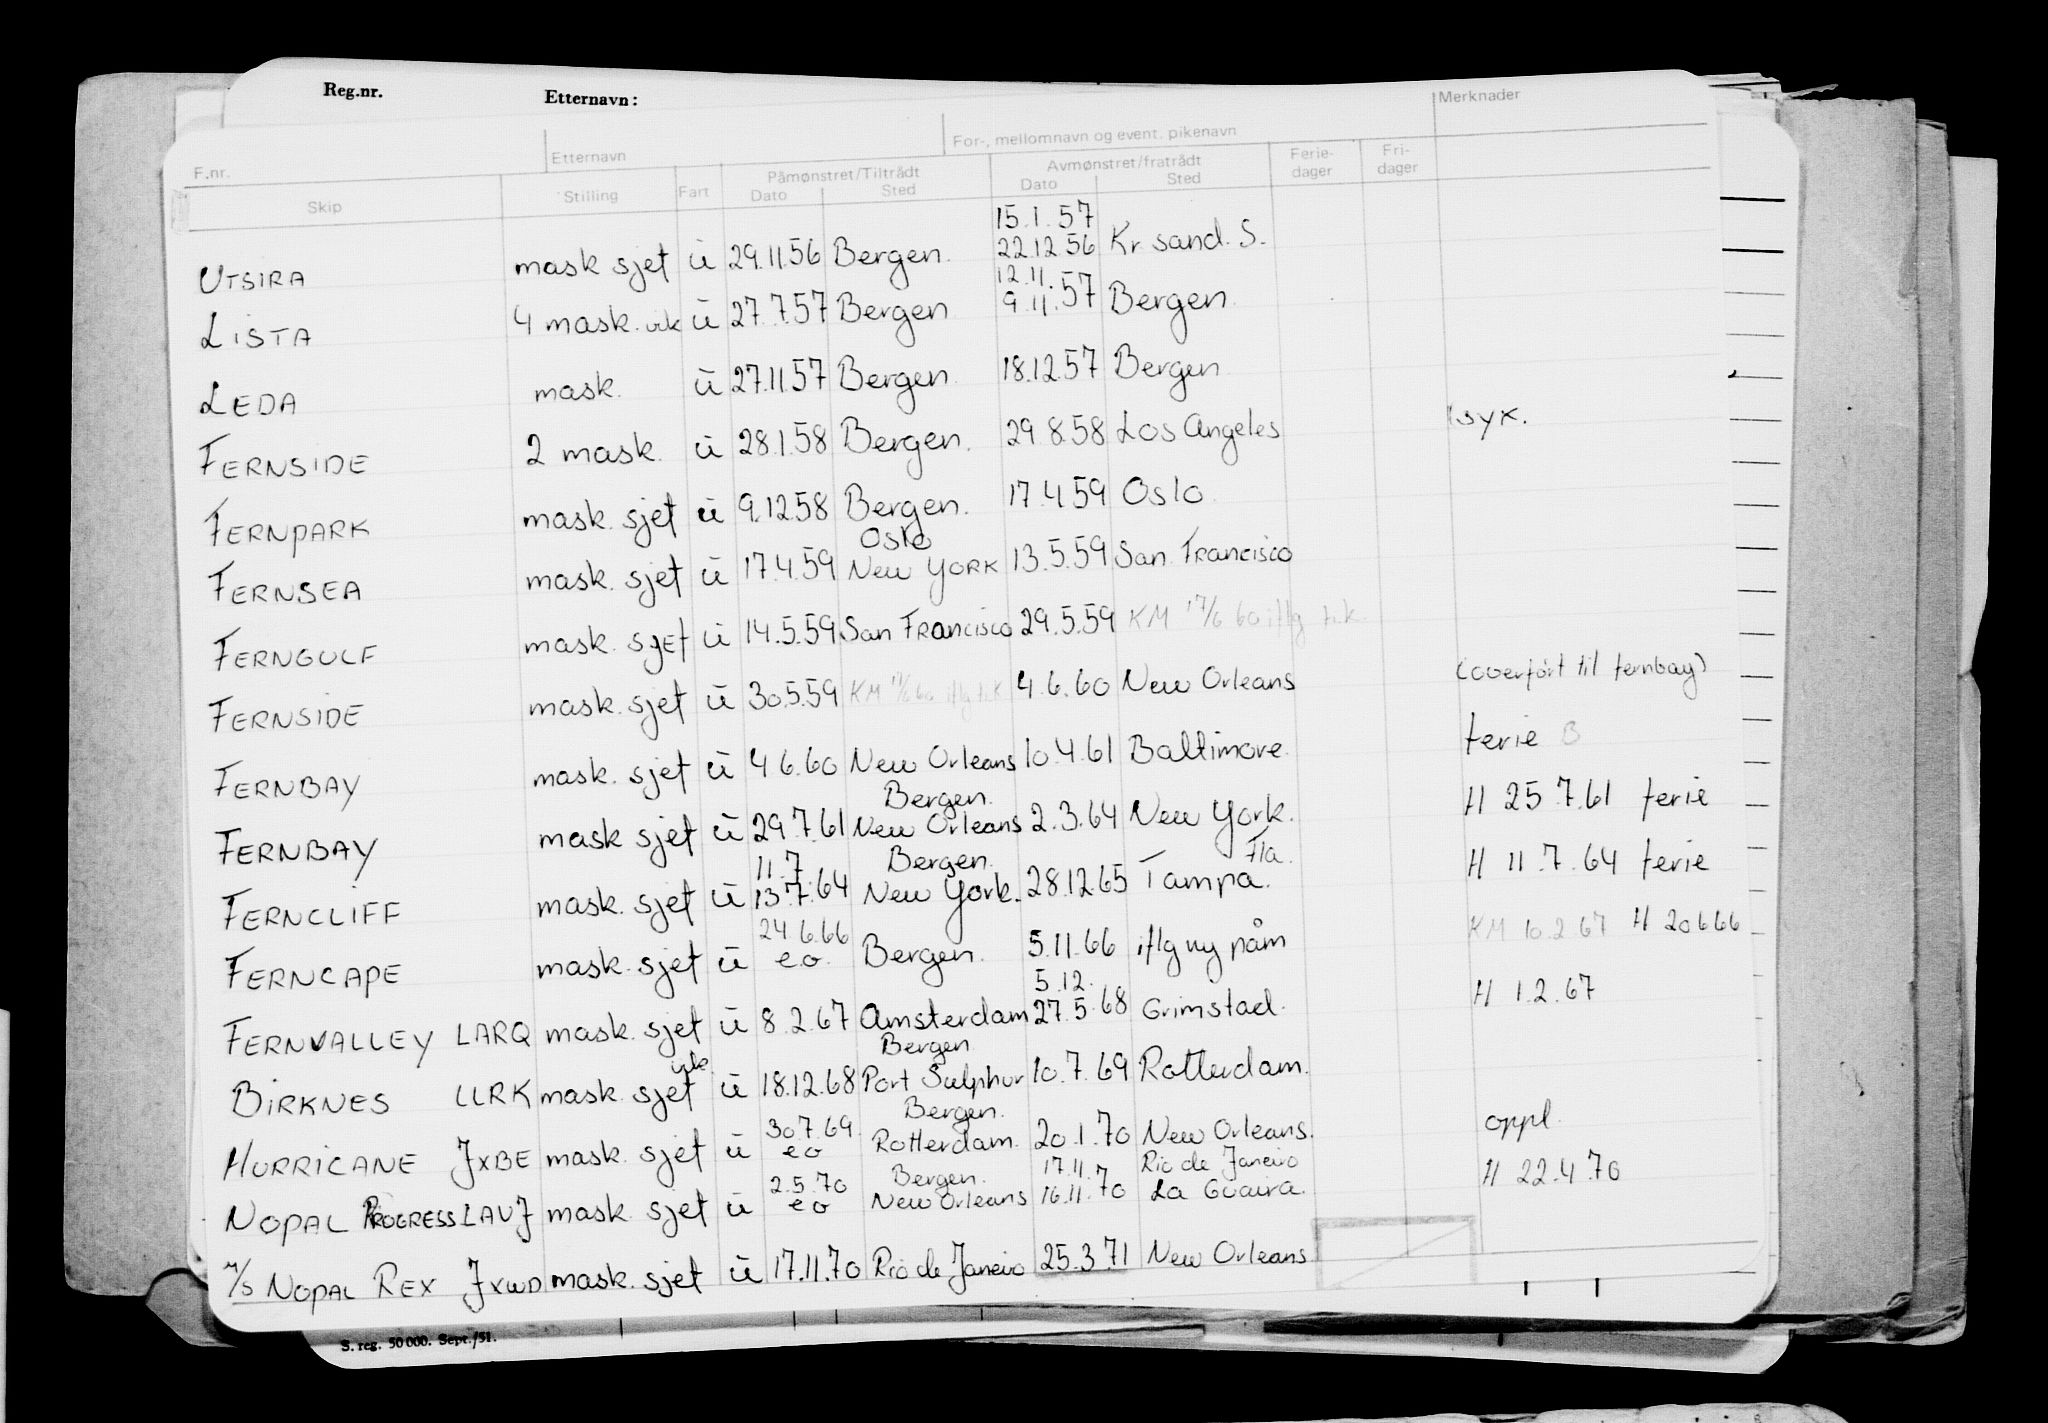 Reg.nr. Etternavn:
Merknader
F.nr. Etternavn For-, mellomnavn og event. pikenavn
Skip Stilling Fart Påmønstret/Tiltrådt Dato Sted Avmønstret/fratrådt Dato Sted Ferie-dager Fri-dager
15.1.57
UTSIRA mask sjef u 29.11.56 Bergen. 22.12.56 Kr. sand. S.
12.11.
LISTA 4 mask. vik u 27.7.57 Bergen 9.11.57 Bergen.
LEDA mask. u 27.11.57 Bergen 18.12.57 Bergen
FERNSIDE 2 mask. u 28.1.58 Bergen. 29.8.58 Los Angeles syk.
FERNPARK mask. sjef u 9.12.58 Bergen. 17.4.59 Oslo.
Oslo
FERNSEA mask. sjef u 17.4.59 New YORK 13.5.59 San. Francisco
FERNGULF mask. sjEf u 14.5.59 San Francisco 29.5.59 KM 17/6 60 iflg t.k.
FERNSIDE mask. sjef u 30.5.59 KM 17/6 60 iflg t.k. 4.6.60 New Orleans (overført til fernbay)
FERNBAY mask. sjef u 4.6.60 New Orleans 10.4.61 Baltimore. ferie B
Bergen.
FERNBAY mask sjef u 29.7.61 New Orleans 2.3.64 New York. H 25.7.61 ferie
11.7. Bergen. Fla.
FERNCLIFF mask. sjef u 13.7.64 New York. 28.12.65 Tampa. H 11.7.64 ferie
24.6.66
FERNCAPE mask. sjef u e.o. Bergen. 5.11.66 iflg ny påm KM 10.2.67 H 20.6.66
5.12.
FERNVALLEY LARQ mask. sjef u 8.2.67 Amsterdam 27.5.68 Grimstad. H 1.2.67
vik. Bergen
BIRKNES LLRK mask. sjef u 18.12.68 Port Sulphur 10.7.69 Rotterdam.
30.7.69. Bergen.
HURRICANE JXBE mask. sjef u eo Rotterdam. 20.1.70 New Orleans. oppl.
2.5.70 Bergen. 17.11. Rio de Janeiro
NOPAL PROGRESS LAVJ mask. sjef u eo New Orleans 16.11.70 La Guaira. H 22.4.70
M/S NOPAL REX JXWD mask. sjef u 17.11.70 Rio de Janeiro 25.3.71 New Orleans
S. reg. 50 000. Sept./51.